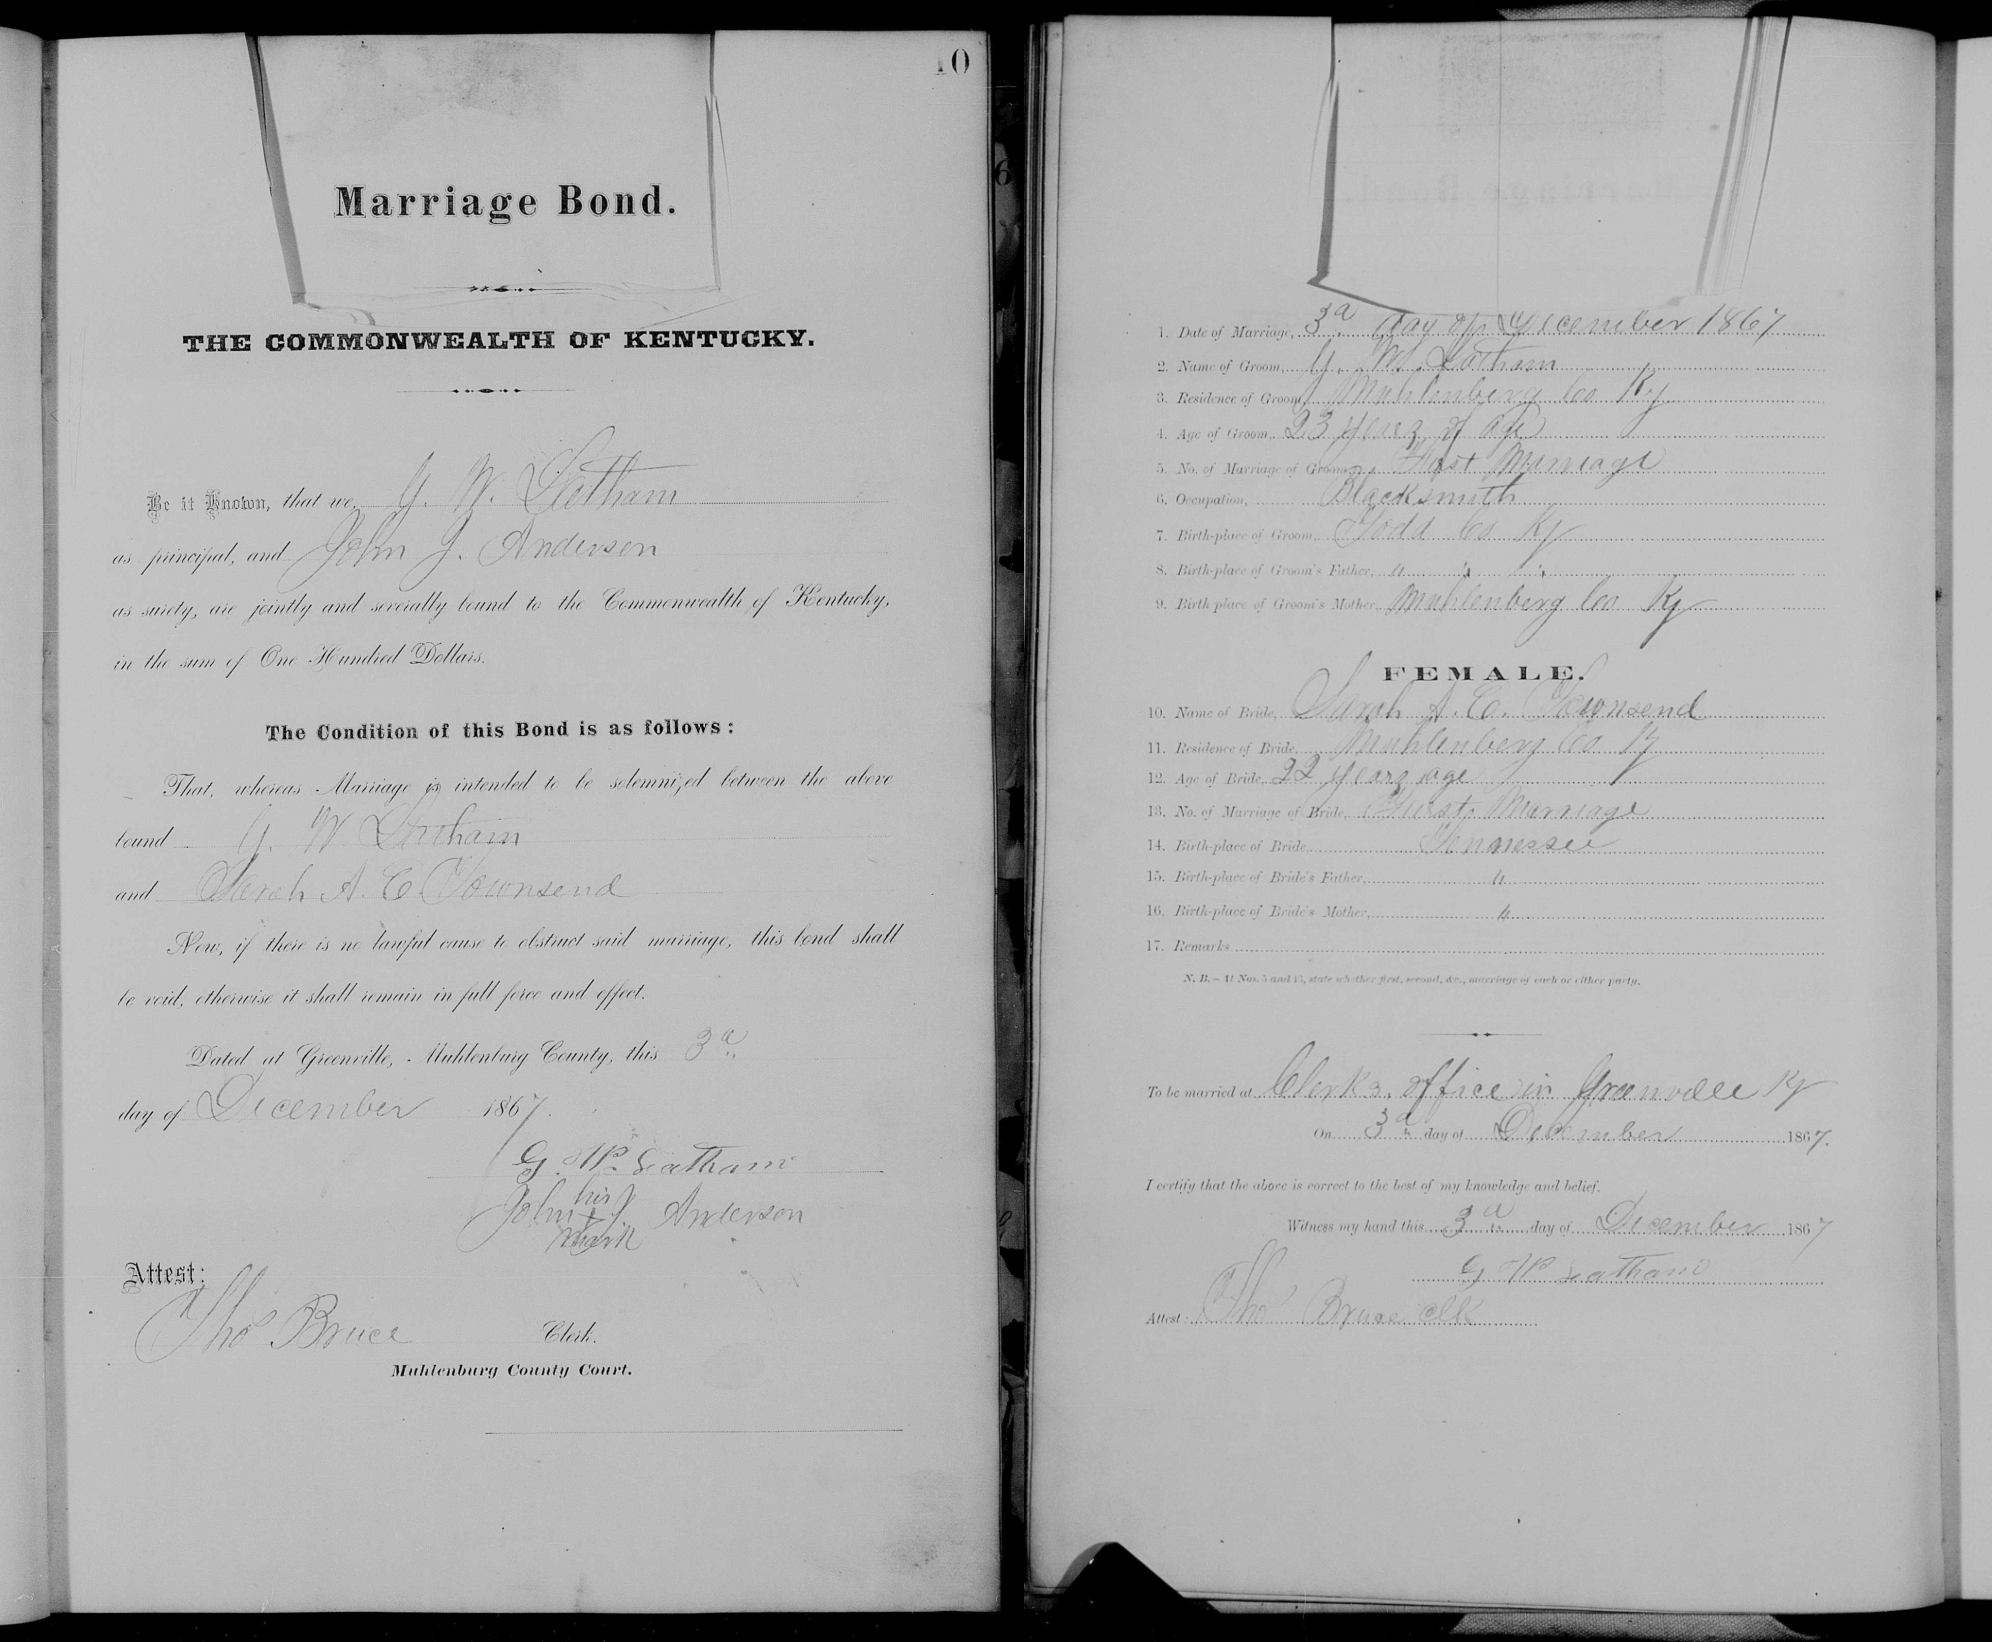 10
Marriage Bond.
THE COMMONWEALTH OF KENTUCKY.
Be it Known, that we, G. W. Latham
as principal, and John J. Anderson
as surety, are jointly and severally bound to the Commonwealth of Kentucky,
in the sum of One Hundred Dollars.
The Condition of this Bond is as follows:
That, whereas Marriage is intended to be solemnized between the above
bound G. W Latham
and Sarah A. C. Townsend
Now, if there is no lawful cause to obstruct said marriage, this bond shall
be void, otherwise it shall remain in full force and effect.
Dated at Greenville, Muhlenburg County, this 3d
day of December 1867.
G W Latham
his
John + J. Anderson
mark
Attest:
Thos Bruce Clerk.
Muhlenburg County Court.
1. Date of Marriage, 3d day of December 1867
2. Name of Groom, G. W. Latham
3. Residence of Groom, Muhlenberg Co Ky
4. Age of Groom, 23 years of age
5. No. of Marriage of Groom, First Marriage
6. Occupation, Blacksmith
7. Birth-place of Groom, Todd Co Ky
8. Birth-place of Groom's Father, " " "
9. Birth-place of Groom's Mother, Muhlenberg Co Ky
FEMALE.
10. Name of Bride, Sarah A. C. Townsend
11. Residence of Bride, Muhlenberg Co Ky
12. Age of Bride, 22 years age
13. No. of Marriage of Bride, First Marriage
14. Birth-place of Bride, Tennessee
15. Birth-place of Bride's Father, "
16. Birth-place of Bride's Mother, "
17. Remarks
N. B.—At Nos. 5 and 13, state whether first, second, &c., marriage of each or either party.
To be married at Clerks office in Greenville Ky
On 3d day of December 1867.
I certify that the above is correct to the best of my knowledge and belief.
Witness my hand this 3d day of December 1867
G W Latham
Attest: Thos Bruce clk